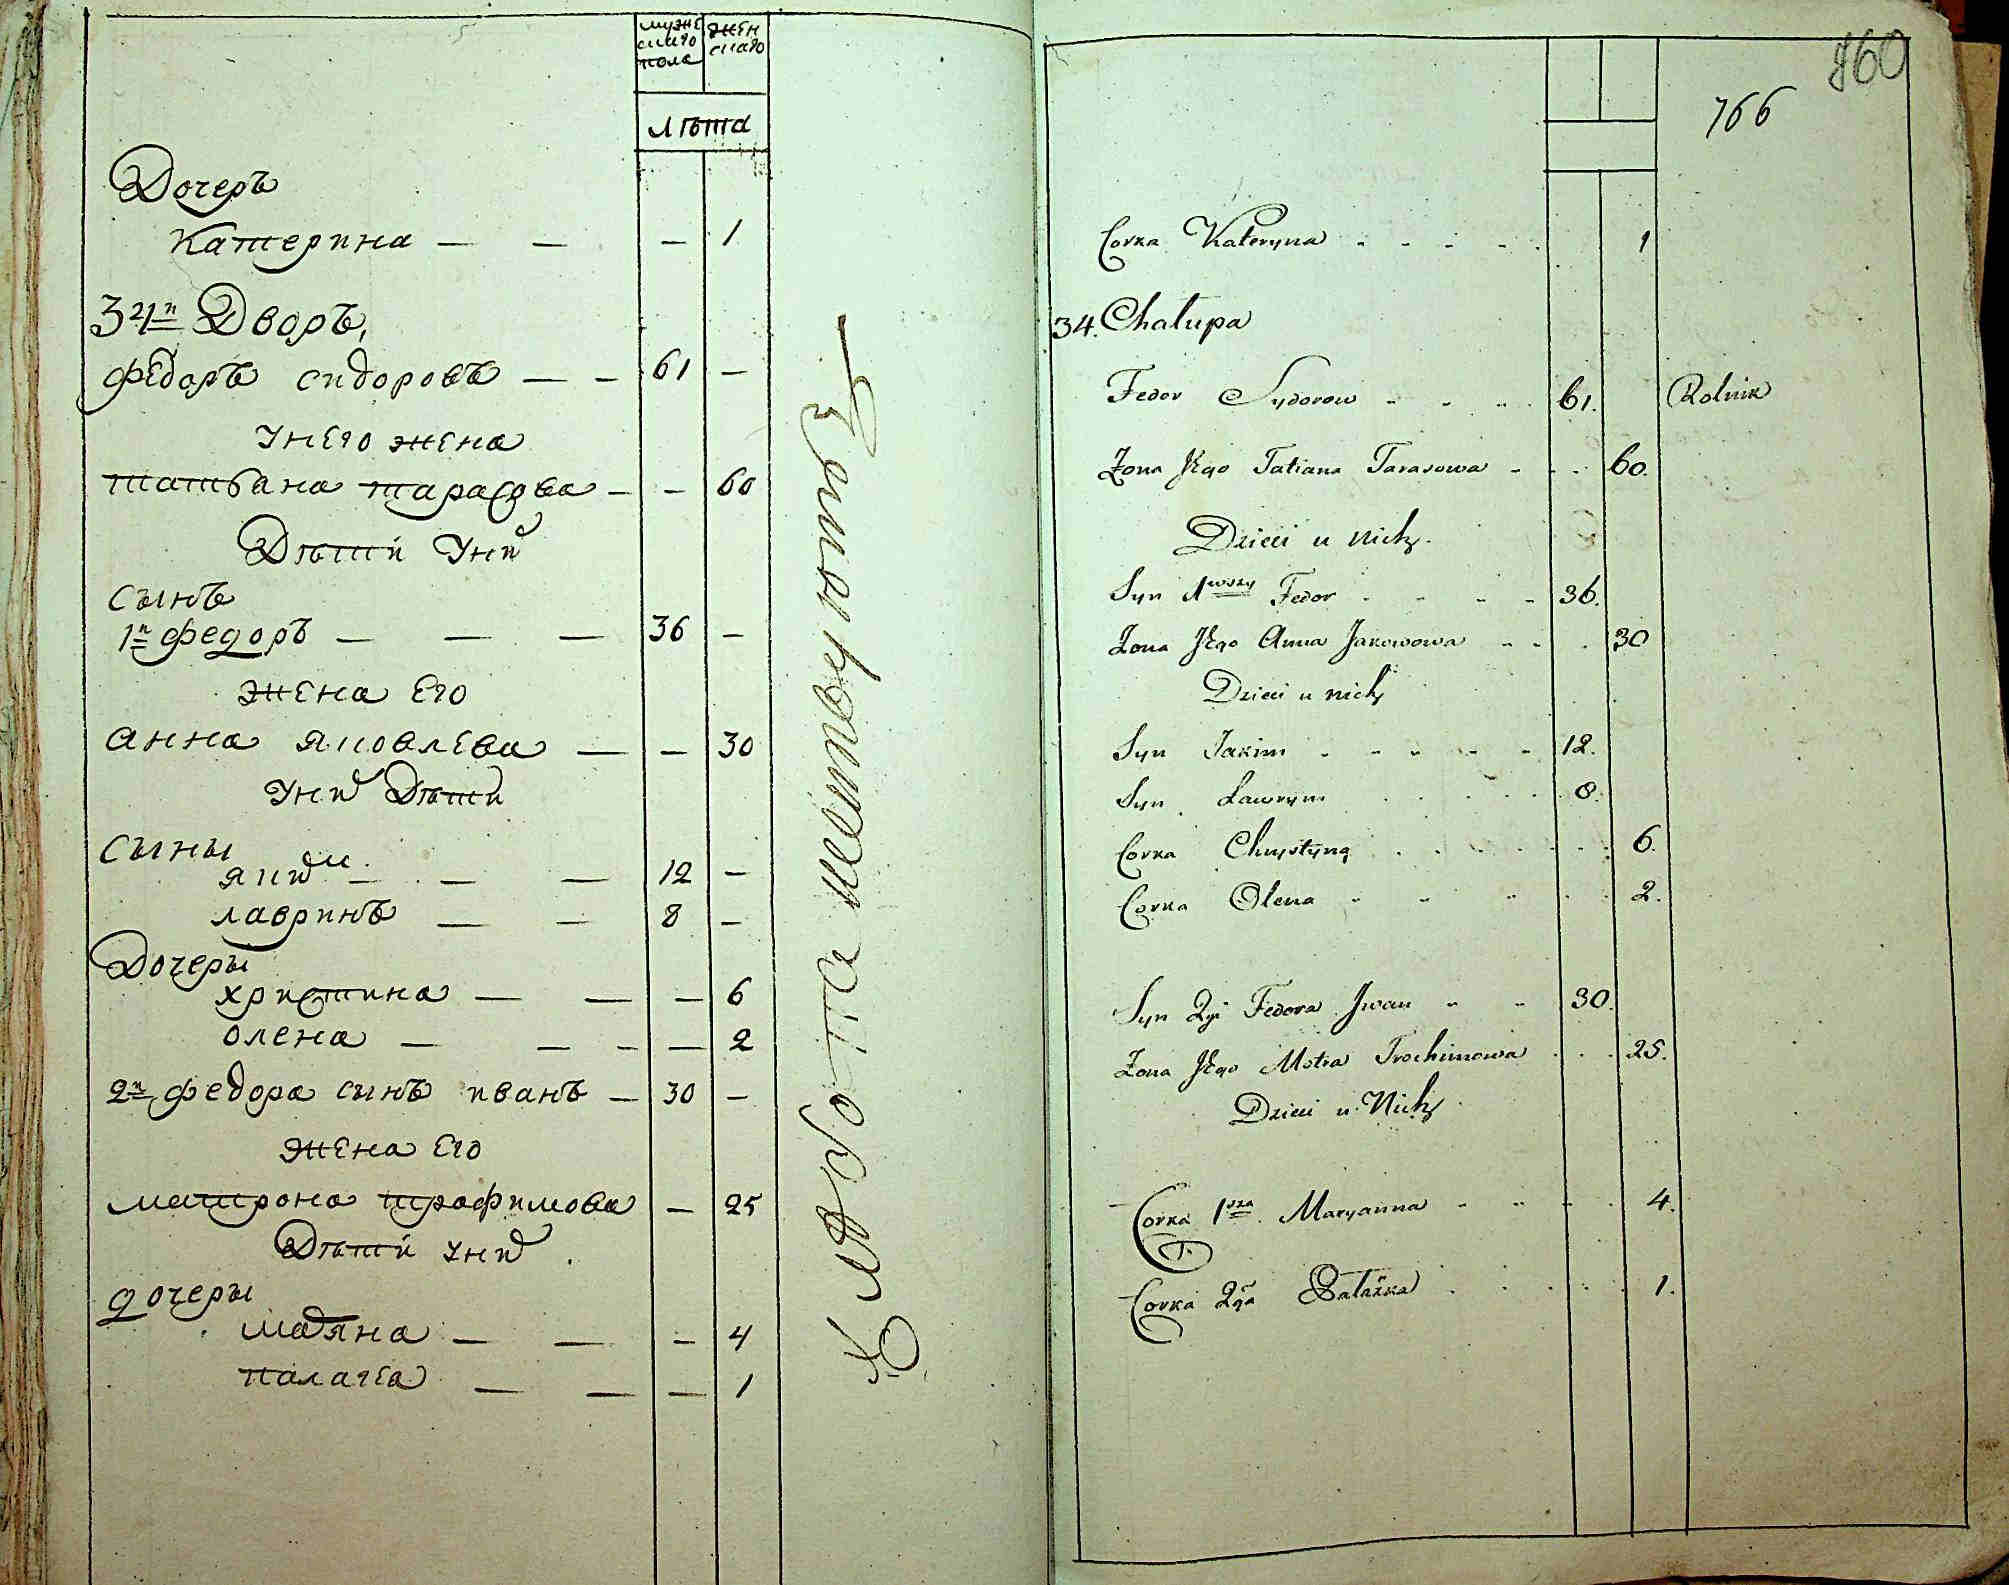 мужескаго пола женскаго
лѣта
Дочеръ
Катерина — — — 1
34й Дворъ,
Федоръ сидоровъ — — 61 —
унего жена
татьѣана тарасова — — 60
Дѣтй Уних
сынъ
1й федоръ — — — 36 —
жена Его
анна яковлева — — 30
Уних Дѣти
сыны
яким — — — 12 —
лавринъ — — 8 —
Дочеры
христина — — — 6
олена — — — — 2
2й федора сынъ иванъ — 30 —
жена Его
матрона трофимова — 25
Дѣтй уних
дочеры
маряна — — — 4
палагея — — — 1
160
766
Corka Kateryna 1
34. Chalupa
Fedor Sydorow 61. Rolnik
Zona Jego Tatiana Tarasowa 60.
Dzieci u nich.
Syn 1wszy Fedor 36.
Zona Jego Anna Jakowowa 30
Dzieci u nich
Syn Jakim 12.
Syn Lawryn 8.
Corka Chrystyna 6.
Corka Olena 2.
Syn 2gi Fedora Jwan 30.
Zona Jego Motra Trochimowa 25.
Dzieci u Nich
Corka 1sza Maryanna 4.
Corka 2ga 1.